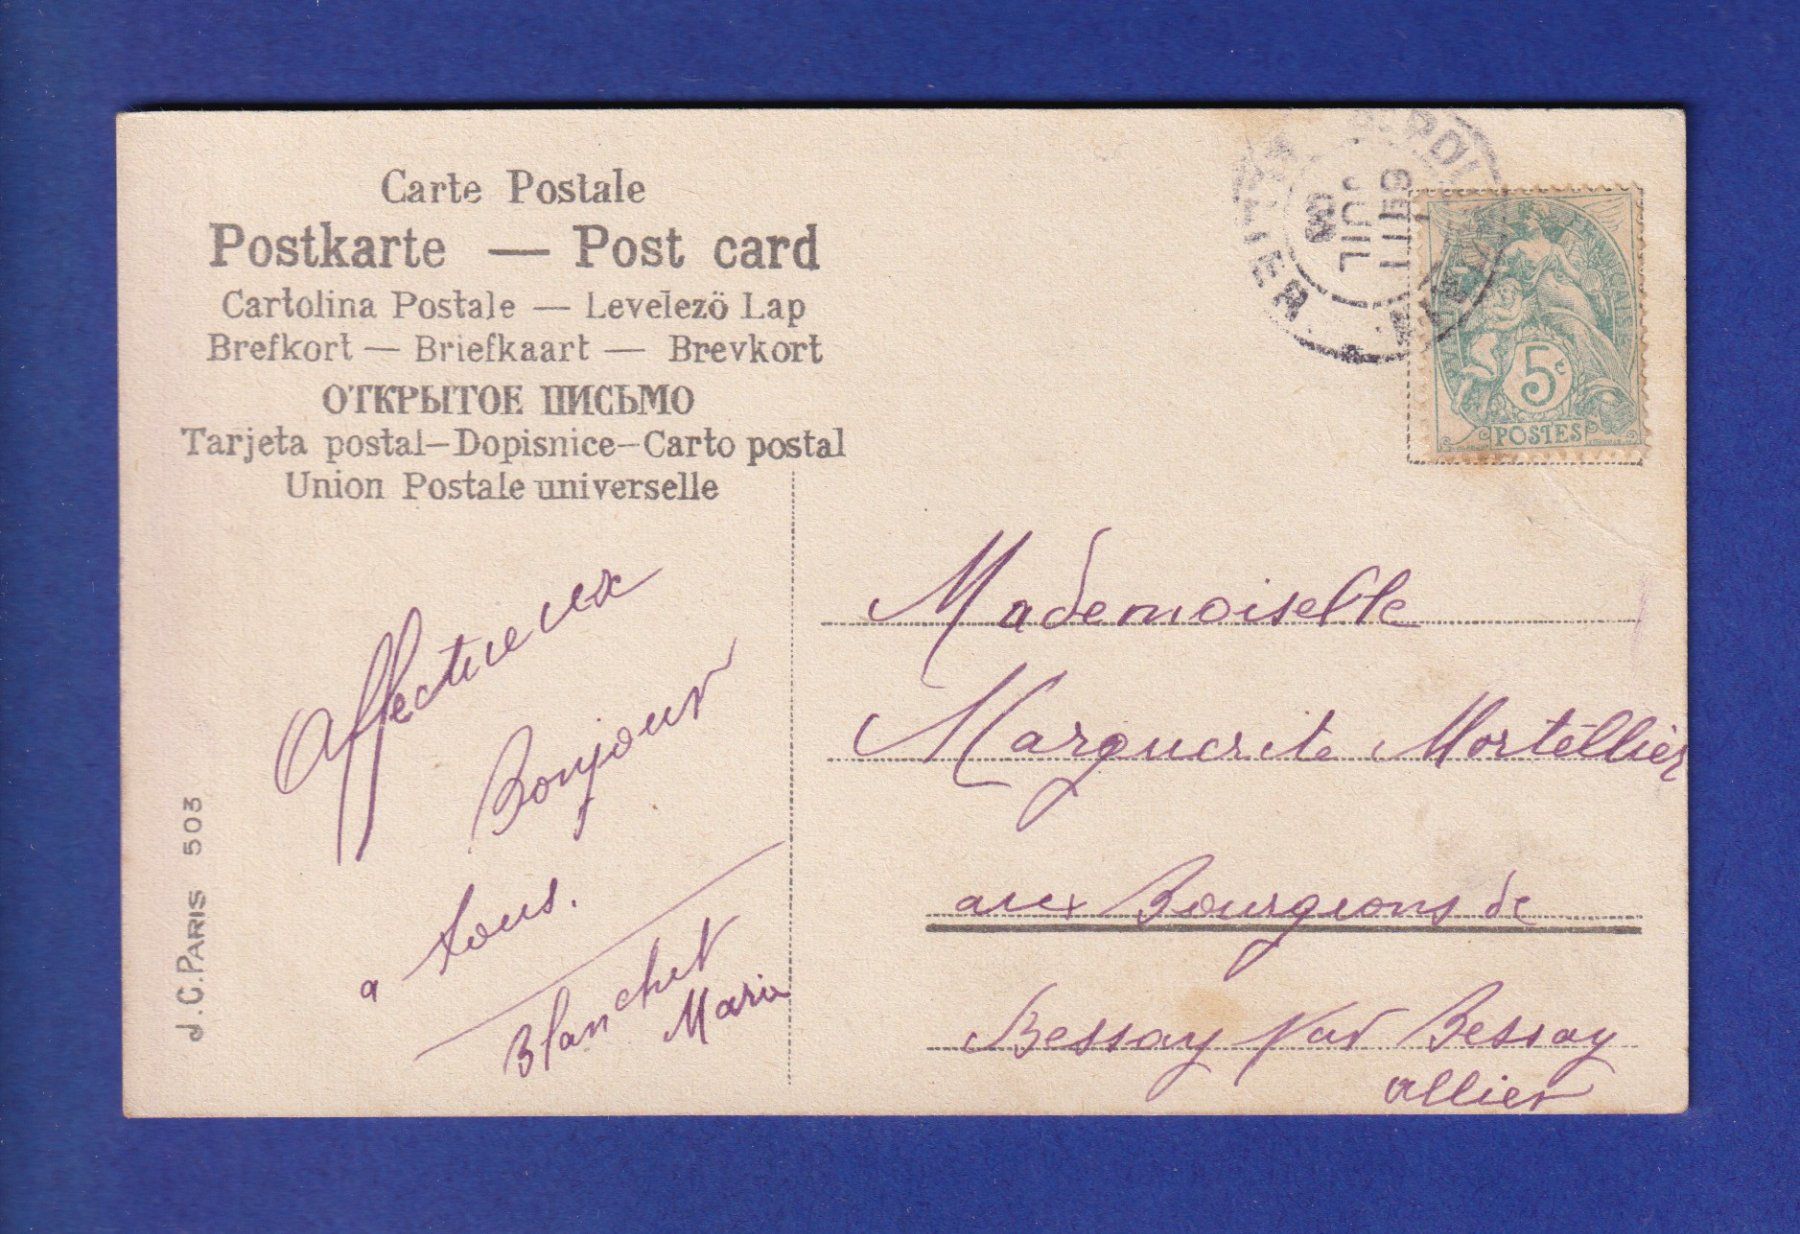 Carte Postale
Postkarte — Post card
Cartolina Postale — Levelezö Lap
Brefkort — Briefkaart — Brevkort
ОТКРЫТОЕ ПИСЬМО
Tarjeta postal—Dopisnice—Carto postal
Union Postale universelle
J.C. PARIS 503
Affectueux
Bonjour
a tous.
Blanchet
Marie
JUIL
08
5c
POSTES
Mademoiselle
Marguerite Mortellier
aux Bourgeons de
Bessay par Bessay
Allier